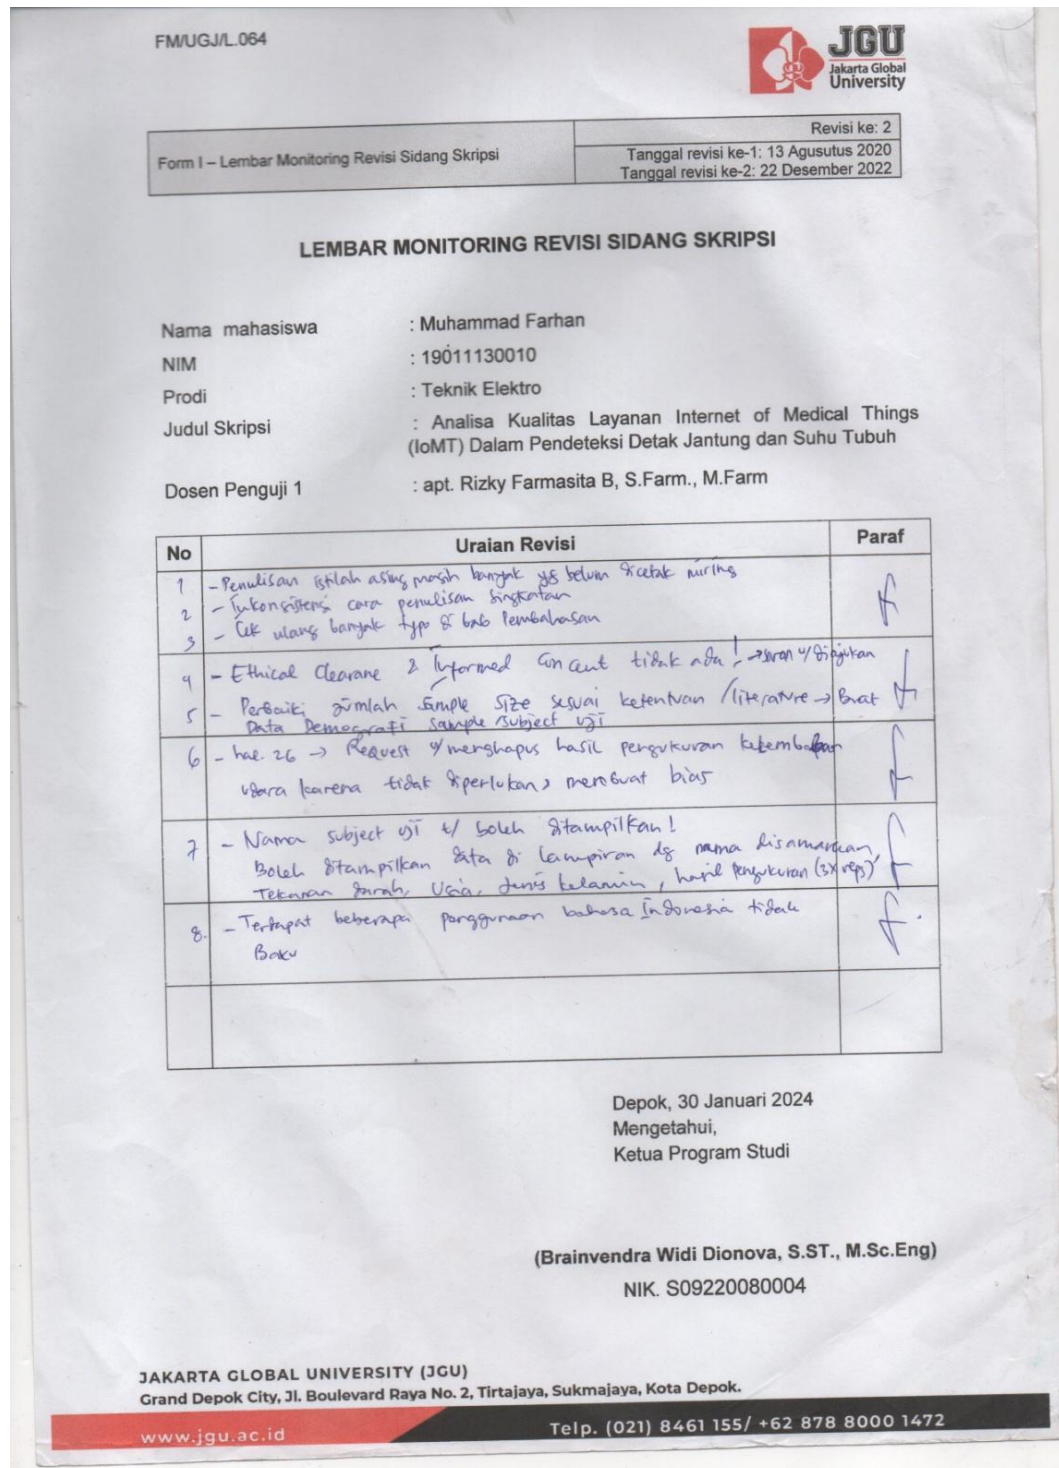 FM/UGJ/L.064
JGU
Jakarta Global
University
Form I – Lembar Monitoring Revisi Sidang Skripsi
Revisi ke: 2
Tanggal revisi ke-1: 13 Agusutus 2020
Tanggal revisi ke-2: 22 Desember 2022
LEMBAR MONITORING REVISI SIDANG SKRIPSI
Nama mahasiswa : Muhammad Farhan
NIM : 19011130010
Prodi : Teknik Elektro
Judul Skripsi : Analisa Kualitas Layanan Internet of Medical Things
(IoMT) Dalam Pendeteksi Detak Jantung dan Suhu Tubuh
Dosen Penguji 1 : apt. Rizky Farmasita B, S.Farm., M.Farm
No Uraian Revisi Paraf
1 - Penulisan istilah asing masih banyak yg belum dicetak miring
2 - Inkonsistensi cara penulisan singkatan
3 - Cek ulang banyak typo di bab Pembahasan
4 - Ethical Clearane & Informed Concent tidak ada! → saran u/ diajukan
5 - Perbaiki jumlah sample size sesuai ketentuan /literature → Buat
Data Demografi sample/subject uji
6 - hal. 26 → Request u/ menghapus hasil pengukuran kelembapan
udara karena tidak diperlukan, membuat bias
7 - Nama subject uji t/ boleh ditampilkan!
Boleh ditampilkan data di lampiran dg nama disamarkan,
Tekanan darah, Usia, Jenis kelamin, hasil pengukuran (3x reps)
8. - Terdapat beberapa penggunaan bahasa Indonesia tidak
Baku
Depok, 30 Januari 2024
Mengetahui,
Ketua Program Studi
(Brainvendra Widi Dionova, S.ST., M.Sc.Eng)
NIK. S09220080004
JAKARTA GLOBAL UNIVERSITY (JGU)
Grand Depok City, Jl. Boulevard Raya No. 2, Tirtajaya, Sukmajaya, Kota Depok.
www.jgu.ac.id
Telp. (021) 8461 155/ +62 878 8000 1472